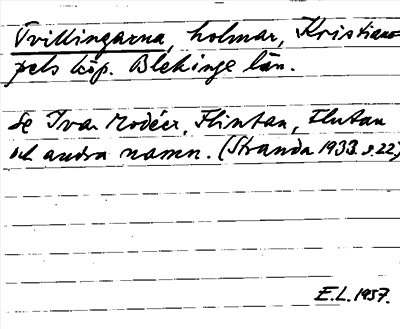 Tvillingarna, holmar, Kristiano-
pels köp. Blekinge län.
Se Ivar Modéer, Flintan, Flutan
och andra namn. (Stranda 1933. s. 22)
E.L. 1957.